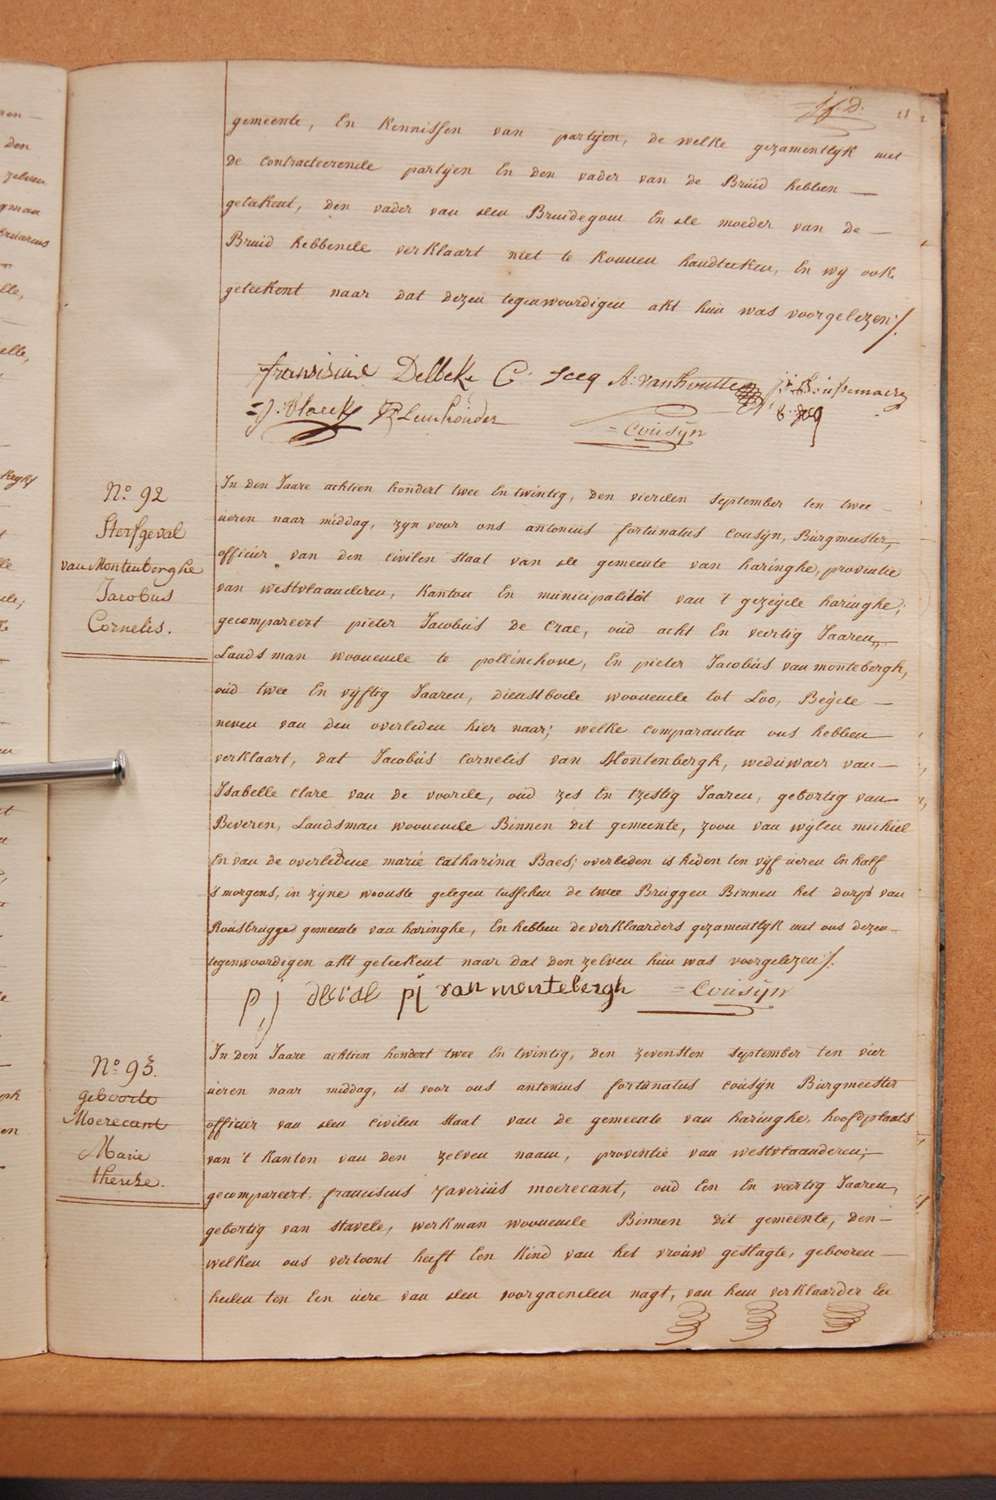 gemeente, En Kennissen van partijen, de welke gezamentlyk met
de contracteerende partijen En den vader van de Bruid hebben —
geteekent, den vader van den Bruidegom En de moeder van de —
Bruid hebbende verklaart niet te konnen handteeken, En wy ook
geteekent naar dat dezen tegenwoordigen akt hun was voorgelezen ./.
Delbeke C. Jeeq A. vanhoutte
Cousÿn
No. 92
Sterfgeval
van Montenberghe
Jacobus
Cornelis.
In den Jaare achtien hondert twee En twintig, den vierden september ten twee
ueren naar middag, zyn voor ons antonius fortunatus cousÿn, Burgmeester,
officier van den civilen staat van de gemeente van haringhe, provintie
van westvlaanderen, kanton En municipaliteit van 't gezeijde haringhe;
gecompareert pieter Jacobus De Crae, oud acht En veertig Jaaren,
Landsman woonende te pollinchove, En pieter Jacobus van montebergh,
oud twee En vijftig Jaaren, dienstbode woonende tot Loo, Beÿde —
neven van den overleden hier naar; welke comparanten ons hebben
verklaart, dat Jacobus Cornelis van Montenbergh, weduwaer van —
Isabelle Clare van de voorde, oud zes En tzestig Jaaren, gebortig van
Beveren, Landsman woonende Binnen dit gemeente, zoon van wylen michiel
En van de overledene marie Catharina Baes; overleden is heden ten vijf ueren En half
s'morgens, in zijne wooste gelegen tusschen de twee Bruggen Binnen het dorp van
Rousbrugge gemeente van haringhe, En hebben de verklaarders gezamentlyk met ons dezen —
tegenwoordigen akt geteekent naar dat den zelven hun was voorgelezen ./.
p j decrae pj van montebergh Cousÿn
No. 93.
geboorte
Moerecant
Marie
therese.
In den Jaare achtien hondert twee En twintig, den zevensten september ten vier
ueren naar middag, is voor ons antonius fortunatus cousÿn Burgmeester
officier van den civilen staat van de gemeente van haringhe, hoofdplaats
van 't Kanton van den zelven naam, provintie van westvlaanderen;
gecompareert franciscus xaverius moerecant, oud Een En veertig Jaaren,
gebortig van stavele, werkman woonende Binnen dit gemeente, den —
welken ons vertoont heeft Een kind van het vrouw geslagte, gebooren —
heden ten Een uere van den voorgaenden nagt, van hem verklaarder En